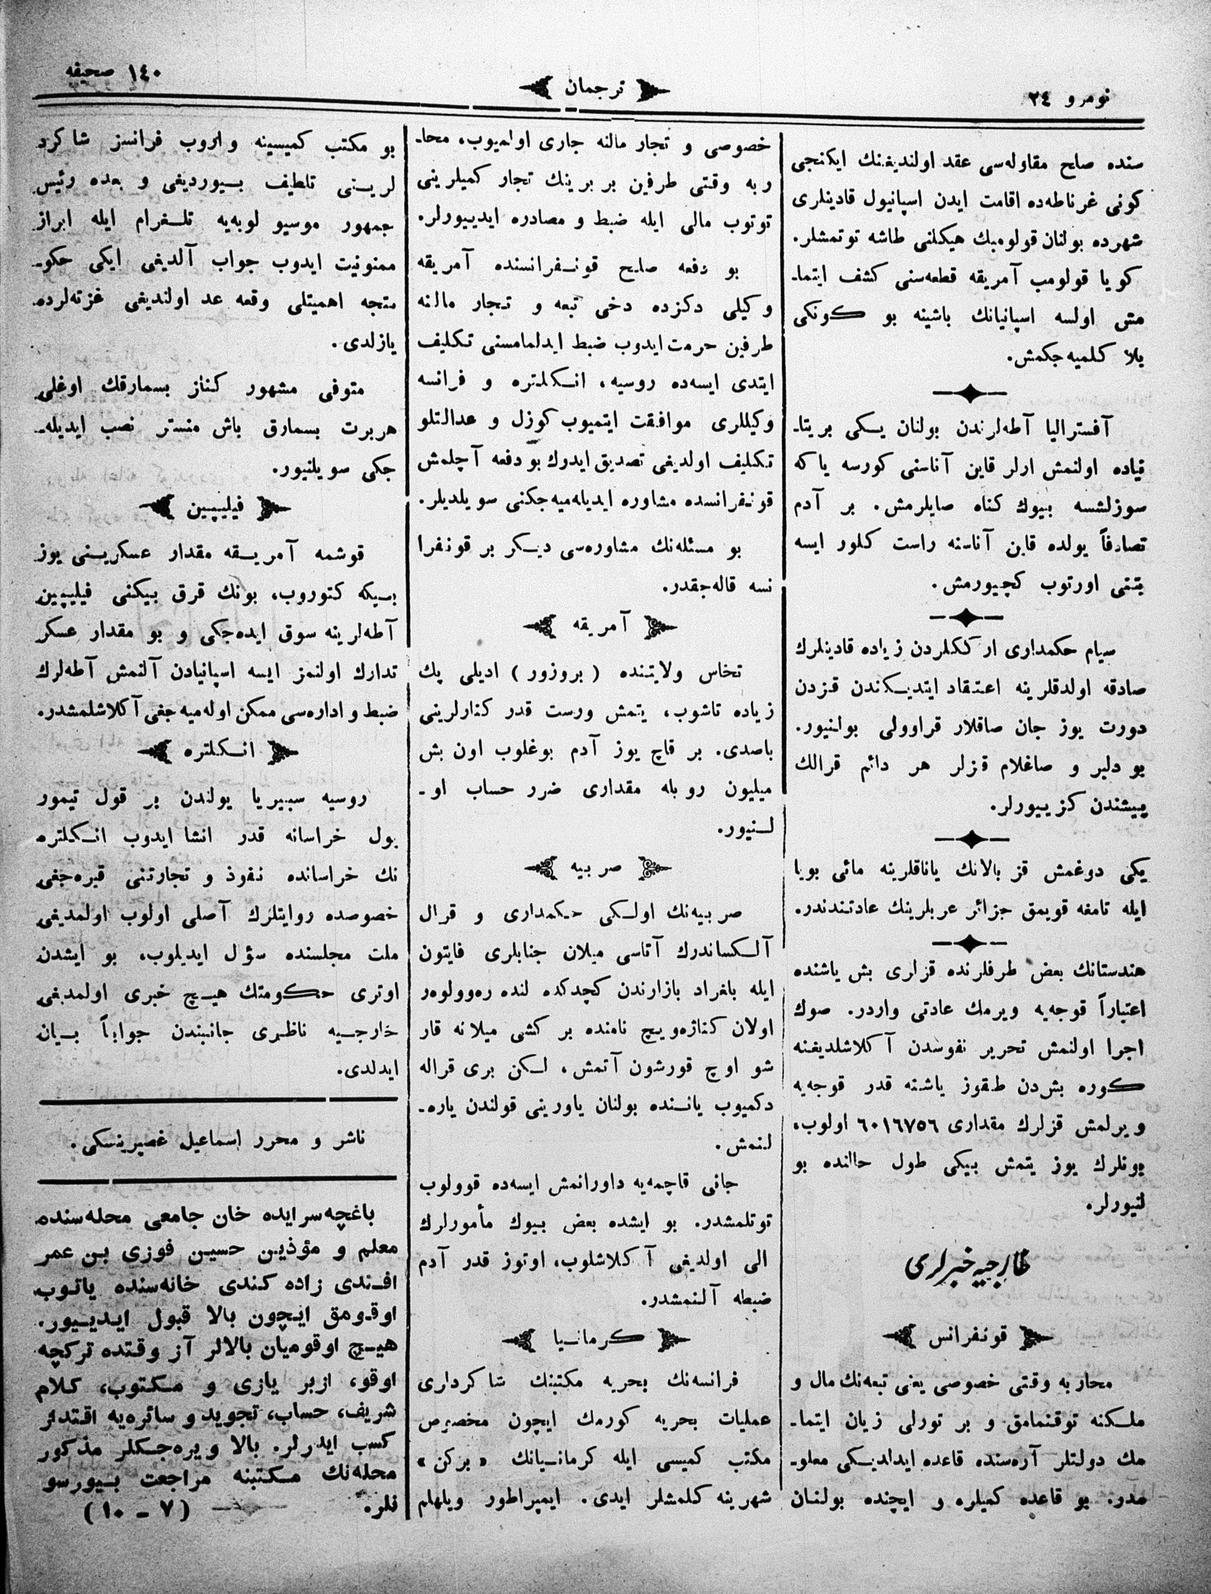 نومرو ٢٤
ترجمان
١٤٠ صحيفه
سنده صلح مقاوله‌سى عقد اولنديغنك ايكنجى
كونى غرناطه‌ده اقامت ايدن اسپانيول قادينلرى
شهرده بولنان قولومبك هيكلنى طاشه توتمشلر.
كويا قولومب آمريقه قطعه‌سنى كشف ايتما-
مش اولسه اسپانيانك باشينه بو كونكى
بلا كلميه‌جكمش.
آفستراليا آطه‌لرندن بولنان يكى بريتا-
نياده اولنمش ارلر قاين آناسنى كورسه ياكه
سوزلشسه بيوك كناه صايلرمش. بر آدم
تصادفاً يولده قاين آناسنه راست كلور ايسه
يتنى اورتوب كچيورمش.
سيام حكمدارى ارككلردن زياده قادينلرك
صادقه اولدقلرينه اعتقاد ايتديكندن قزدن
دورت يوز جان صاقلار قراوولى بولنيور.
بو دلير و صاغلام قزلر هر دائم قرالك
پيشندن كزييورلر.
يكى دوغمش قز بالانك ياناقلرينه مائى بويا
ايله تامغه قويمق جزائر عربلرينك عادتندندر.
هندستانك بعض طرفلرنده قزلرى بش ياشنده
اعتباراً قوجه‌يه ويرمك عادتى واردر. صوك
اجرا اولنمش تحرير نفوسدن آكلاشلديغنه
كوره بش‌دن طقوز ياشنه قدر قوجه‌يه
ويرلمش قزلرك مقدارى ٦٠١٦٧٥٦ اولوب،
بونلرك يوز يتمش بيكى طول حالنده بو
لنيورلر.
خارجيه خبرلرى
قونفرانس
محاربه وقتى خصوصى يعنى تبعه‌نك مال و
ملكنه توقنمامق و بر تورلى زيان ايتما-
مك دولتلر آره‌سنده قاعده ايدلديكى معلو-
مدر. بو قاعده كميلره و ايچنده بولنان
خصوصى و تجار مالنه جارى اولميوب، محا-
ربه وقتى طرفين بربرينك تجار كميلرينى
توتوب مالى ايله ضبط و مصادره ايدييورلر.
بو دفعه صلح قونفرانسنده آمريقه
وكيلى دكزده دخى تبعه و تجار مالنه
طرفين حرمت ايدوب ضبط ايدلمامسنى تكليف
ايتدى ايسه‌ده روسيه، انكلتره و فرانسه
وكيللرى موافقت ايتميوب كوزل و عدالتلو
تكليف اولديغى تصديق ايدرك بو دفعه آچلمش
قونفرانسده مشاوره ايديله‌ميه‌جكنى سويلديلر.
بو مسئله‌نك مشاوره‌سى ديكر بر قونفرا
نسه قاله‌جقدر.
آمريقه
تخاس ولايتنده (بروزور) اديلى پك
زياده تاشوب، يتمش ورست قدر كنارلرينى
باصدى. بر قاچ يوز آدم بوغلوب اون بش
ميليون روبله مقدارى ضرر حساب او-
لنيور.
صربيه
صربيه‌نك اولكى حكمدارى و قرال
آلكساندرك آتاسى ميلان جنابلرى فايتون
ايله بلغراد بازارندن كچدكده لنده ره‌وولوه‌ر
اولان كنازه‌ويچ نامنده بر كشى ميلانه قار
شو اوچ قورشون آتمش، لكن برى قراله
دكميوب ياننده بولنان ياورينى قولندن ياره-
لنمش.
جانى قاچمه‌يه داورانمش ايسه‌ده قوولوب
توتلمشدر. بو ايشده بعض بيوك مأمورلرك
الى اولديغى آكلاشلوب، اوتوز قدر آدم
ضبطه آلنمشدر.
كرمانيا
فرانسه‌نك بحريه مكتبنك شاكردارى
عمليات بحريه كورمك ايچون مخصوص
مكتب كميسى ايله كرمانيانك «بركن»
شهرينه كلمشلر ايدى. ايمپراطور ويلهلم
بو مكتب كميسينه واروب فرانسز شاكرد
لرينى تلطيف بيورديغى و بعده رئيس
جمهور موسيو لوبه‌يه تلغرام ايله ابراز
ممنونيت ايدوب جواب آلديغى ايكى حكو-
متجه اهميتلى وقعه عد اولنديغى غزته‌لرده
يازلدى.
متوفى مشهور كناز بسمارقك اوغلى
هربرت بسمارق باش منستر نصب ايديله-
جكى سويلنيور.
فيليپين
قوشمه آمريقه مقدار عسكرينى يوز
بيكه كتوروب، بونك قرق بيكنى فيليپين
آطه‌لرينه سوق ايده‌جكى و بو مقدار عسكر
تدارك اولنمز ايسه اسپانيادن آلنمش آطه‌لرك
ضبط و اداره‌سى ممكن اوله‌ميه‌جغى آكلاشلمشدر.
انكلتره
روسيه سيبيريا يولندن بر قول تيمور
يول خراسانه قدر انشا ايدوب انكلتره
نك خراسانده نفوذ و تجارتنى قيره‌جغى
خصوصده روايتلرك آصلى اولوب اولمديغى
ملت مجلسنده سؤل ايديلوب، بو ايشدن
اوترى حكومتك هيچ خبرى اولمديغى
خارجيه ناظرى جانبندن جواباً بيان
ايدلدى.
ناشر و محرر اسماعيل غصپرينسكى.
باغچه‌سرايده خان جامعى محله‌سنده
معلم و مؤذين حسين فوزى بن عمر
افندى زاده كندى خانه‌سنده ياتوب
اوقومق ايچون بالا قبول ايدييور.
هيچ اوقوميان بالالر آز وقتده تركچه
اوقو، ازبر يازى و مكتوب، كلام
شريف، حساب، تجويد و سائره‌يه اقتدار
كسب ايدرلر. بالا ويره‌جكلر مذكور
محله‌نك مكتبنه مراجعت بيورسو
نلر.
(٧ - ١٠)